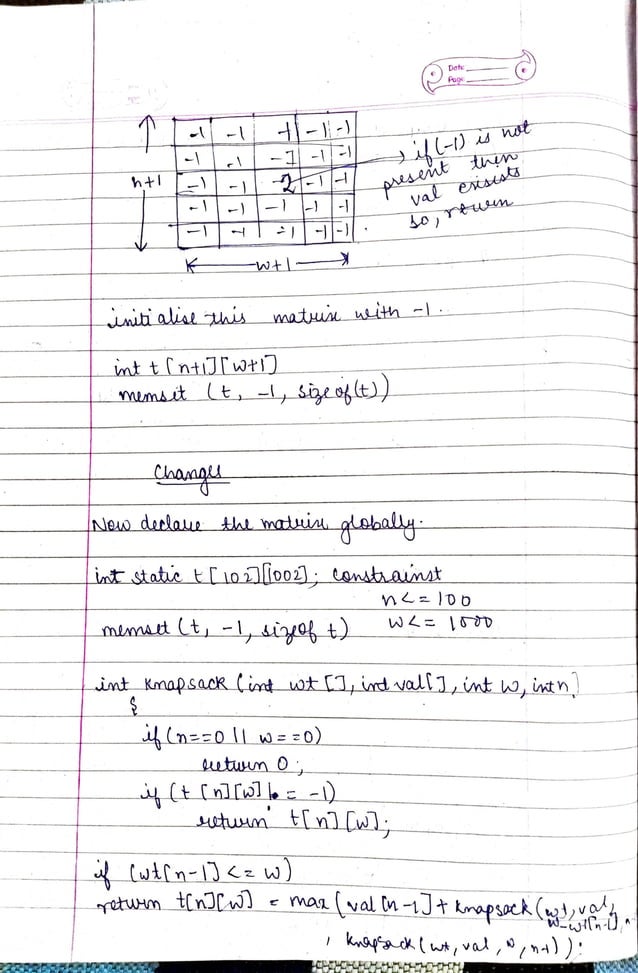 Date
Page
-1 -1 -1 -1 -1
-1 -1 -1 -1 -1
-1 -1 2 -1 -1
-1 -1 -1 -1 -1
-1 -1 -1 -1 -1
n+1
w+1
if (-1) is not
present then
val exisists
so, return
initialise this matrix with -1.
int t[n+1][w+1]
memset (t, -1, sizeof(t))
Changes
Now declare the matrix globally.
int static t[102][1002]; constrainst
n<=100
memset (t, -1, sizeof t) w<= 1000
int knapsack (int wt[], int val[], int w, int n)
{
if (n==0 || w==0)
return 0;
if (t[n][w] != -1)
return t[n][w];
if (wt[n-1] <= w)
return t[n][w] = max (val[n-1] + knapsack (wt, val,
w-wt[n-1], n-
, knapsack (wt, val, w, n-1));